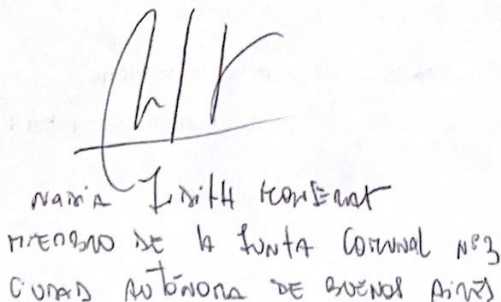 MARIA EDITH MONSERRAT
MIEMBRO DE LA JUNTA COMUNAL Nº3
CIUDAD AUTÓNOMA DE BUENOS AIRES